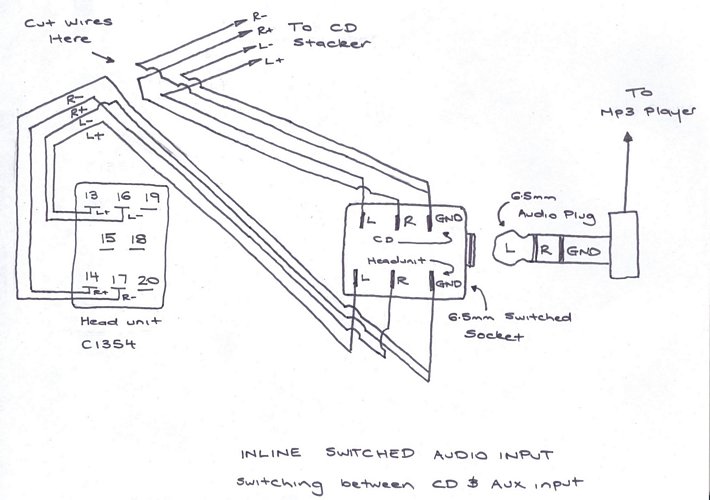 Cut Wires
Here
R-
R+
L-
L+
To CD
Stacker
R-
R+
L-
L+
To
Mp3 Player
13 16 19
L+ L-
15 18
14 17 20
R+ R-
Head unit
C1354
L R GND
CD
Headunit
L R GND
6.5mm
Audio Plug
L R GND
6.5mm Switched
Socket
INLINE SWITCHED AUDIO INPUT
Switching between CD & AUX input